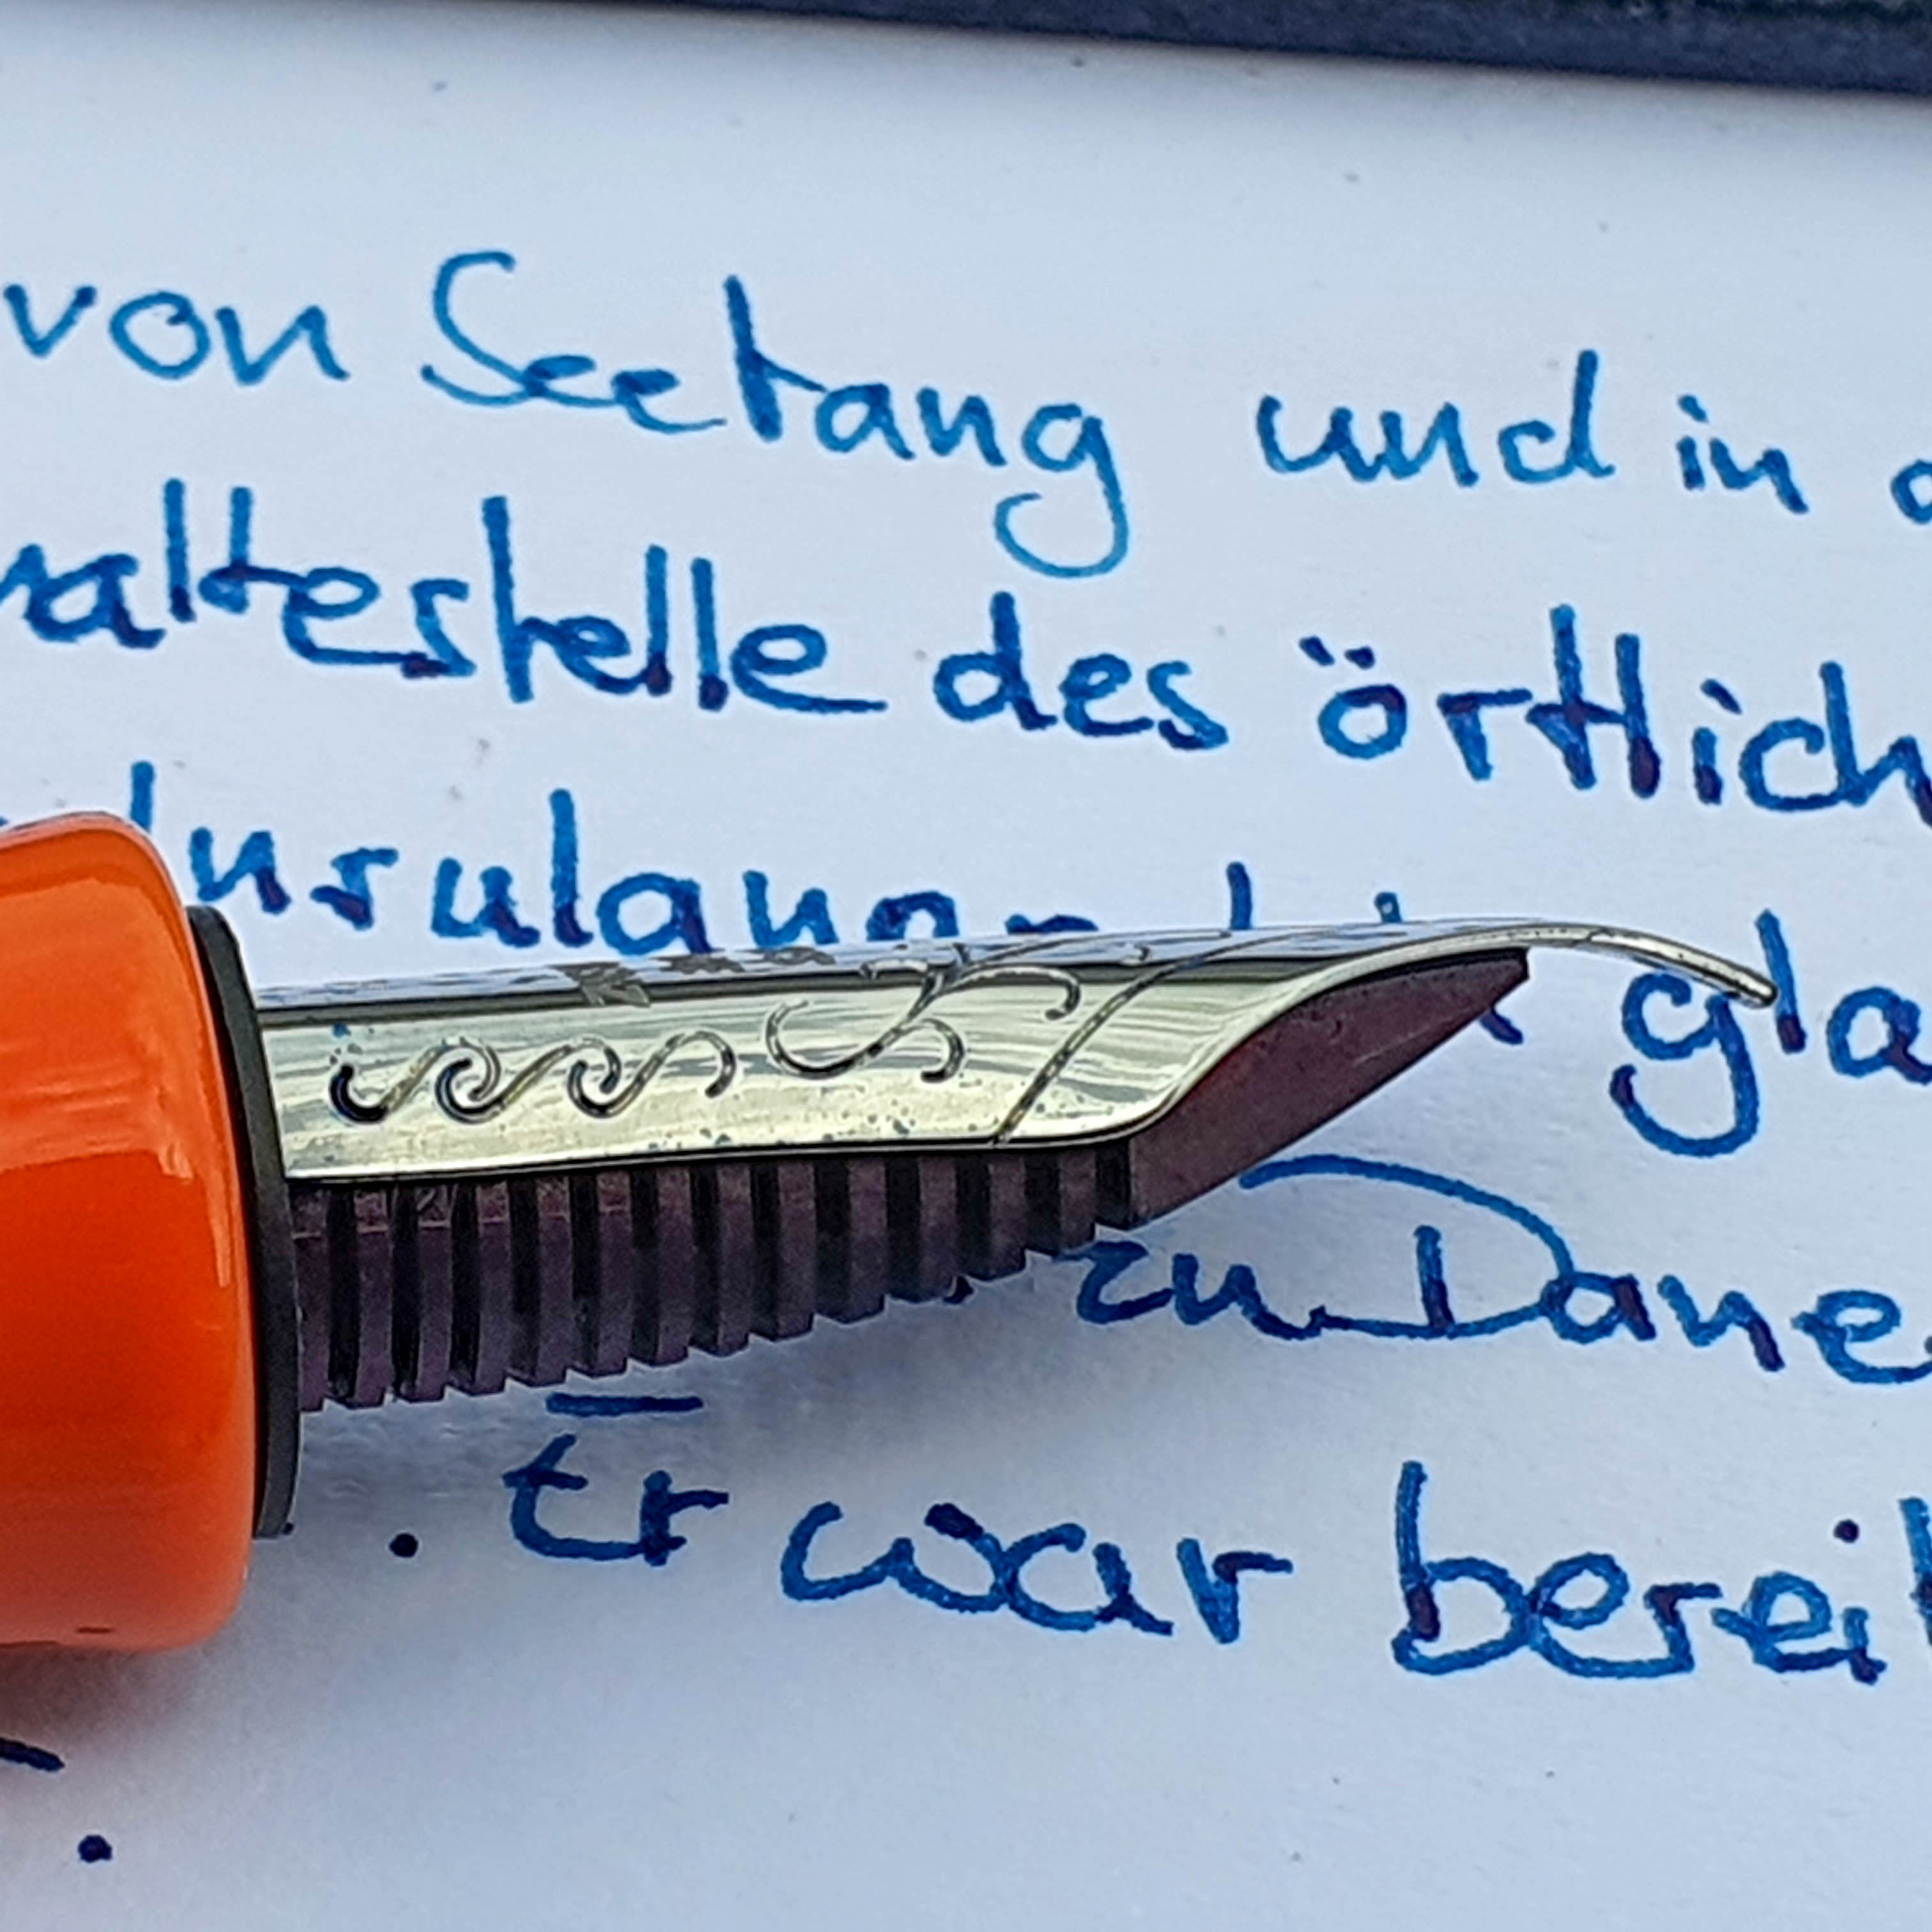 von Seetang und in d
haltestelle des örtlich
Insulaner gla
zu Dane
. Er war bereit